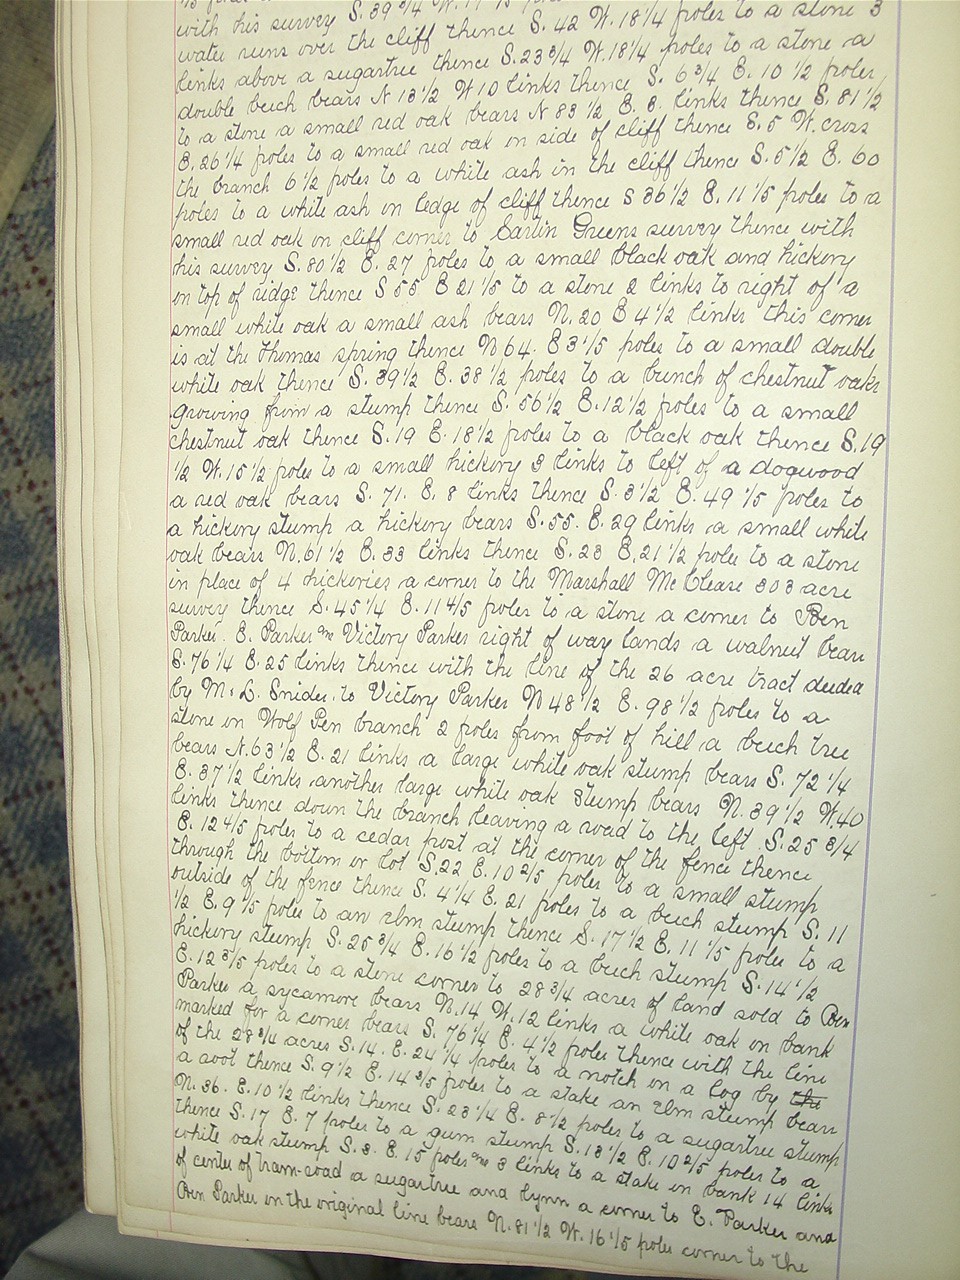 with his survey S. 39 3/4 W.
water runs over the cliff thence S. 42 W. 18 1/4 poles to a stone 3
links above a sugartree thence S. 23 3/4 W. 18 1/4 poles to a stone a
double beech bears N 13 1/2 W 10 links thence S. 6 3/4 E. 10 1/2 poles,
to a stone a small red oak bears N 83 1/2 E. 8. links thence S. 81 1/2
E. 26 1/4 poles to a small red oak on side of cliff thence S. 5 W. cross
the branch 6 1/2 poles to a white ash in the cliff thence S. 5 1/2 E. 60
poles to a white ash on ledge of cliff thence S 36 1/2 E. 11 1/5 poles to a
small red oak on cliff corner to Sarlin Greens survey thence with
his survey S. 80 1/2 E. 27 poles to a small black oak and hickory
on top of ridge thence S 55 E 21 1/5 to a stone 2 links to right of a
small white oak a small ash bears N. 20 E 4 1/2 links this corner
is at the Thomas spring thence N 64. E 3 1/5 poles to a small double
white oak thence S. 39 1/2 E. 38 1/2 poles to a bunch of chestnut oaks
growing from a stump thence S. 56 1/2 E. 12 1/2 poles to a small
chestnut oak thence S. 19 E. 18 1/2 poles to a black oak thence S. 19
1/2 W. 15 1/2 poles to a small hickory 3 links to left of a dogwood
a red oak bears S. 71. E. 8 links thence S. 3 1/2 E. 49 1/5 poles to
a hickory stump a hickory bears S. 55. E. 29 links a small white
oak bears N. 61 1/2 E. 33 links thence S. 23 E. 21 1/2 poles to a stone
in place of 4 hickories a corner to the Marshall McClease 303 acre
survey thence S. 45 1/4 E. 11 4/5 poles to a stone a corner to Ben
Parker. E. Parker and Victory Parker right of way lands a walnut bears
S. 76 1/4 E. 25 links thence with the line of the 26 acre tract deeded
by M. L. Snider to Victory Parker N 48 1/2 E. 98 1/2 poles to a
stone in Wolf Pen branch 2 poles from foot of hill a beech tree
bears N. 63 1/2 E. 21 links a large white oak stump bears S. 72 1/4
E. 37 1/2 links another large white oak stump bears N. 39 1/2 W. 40
links thence down the branch leaving a road to the left S. 25 3/4
E. 12 4/5 poles to a cedar post at the corner of the fence thence
through the bottom or lot S. 22 E. 10 2/5 poles to a small stump
outside of the fence thence S. 4 1/4 E. 21 poles to a beech stump S. 11
1/2 E. 9 1/5 poles to an elm stump thence S. 17 1/2 E. 11 1/5 poles to a
hickory stump S. 25 3/4 E. 16 1/2 poles to a beech stump S. 14 1/2
E. 12 3/5 poles to a stone corner to 28 3/4 acres of land sold to Ben
Parker a sycamore bears N. 14 W. 12 links a white oak on bank
marked for a corner bears S. 76 1/4 E. 4 1/2 poles thence with the line
of the 28 3/4 acres S. 14. E. 24 1/4 poles to a notch on a log by the
a root thence S. 9 1/2 E. 14 3/5 poles to a stake an elm stump bears
N. 36. E. 10 1/2 links thence S. 23 1/4 E. 8 1/2 poles to a sugartree stump
thence S. 17 E. 7 poles to a gum stump S. 18 1/2 E. 10 2/5 poles to a
white oak stump S. 3. E. 15 poles and 3 links to a stake in bank 14 links
of center of tram-road a sugartree and lynn a corner to E. Parker and
Ben Parker on the original line bears N. 81 1/2 W. 16 1/5 poles corner to the